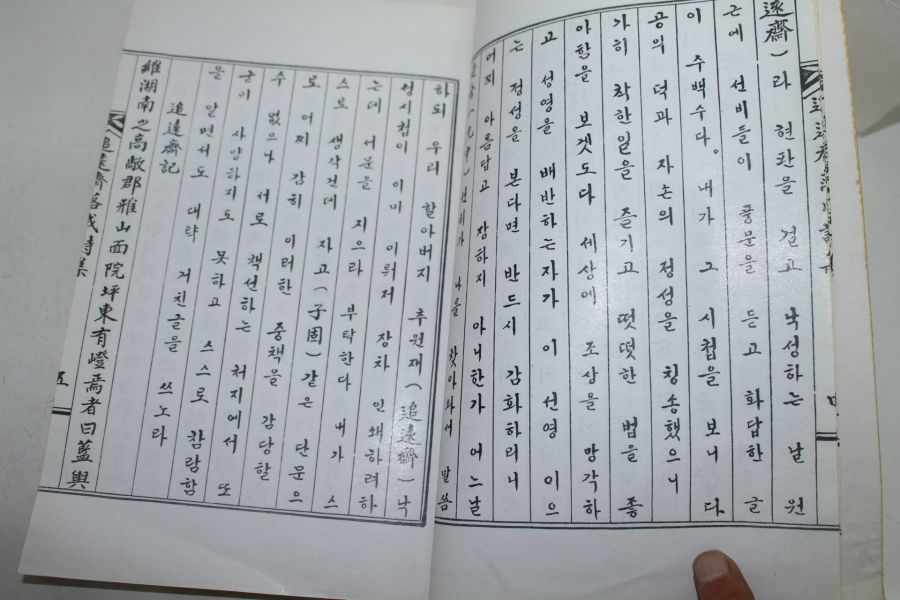 遠齋)라 현판을 걸고 낙성하는 날 원
근에 선비들이 풍문을 듣고 화답한 글
이 수백수다. 내가 그 시첩을 보니 다
공의 덕과 자손의 정성을 칭송했으니
가히 착한일을 즐기고 떳떳한 법을 좋
아함을 보겟도다 세상에 조상을 망각하
고 성영을 배반하는자가 이 선영 이으
는 정성을 본다면 반드시 감화하리니
어찌 아름답고 장하지 아니한가 어느날
선비가 나를 찾아와서 말씀
하되 우리 할아버지 추원재(追遠齋)낙
성시첩이 이미 이뤄저 장차 인쇄하려하
는데 서문을 지으라 부탁한다 내가 스
스로 생각건데 자고(子固)같은 단문으
로 어찌 감히 이러한 중책을 감당할
수 없으나 서로 책선하는 처지에서 또
굳이 사양하지도 못하고 스스로 참람함
을 알면서도 대략 거친글을 쓰노라
追遠齋記
維湖南之高敞郡雅山面院坪東有嶝焉者曰藍輿
追遠齋落成詩集
五